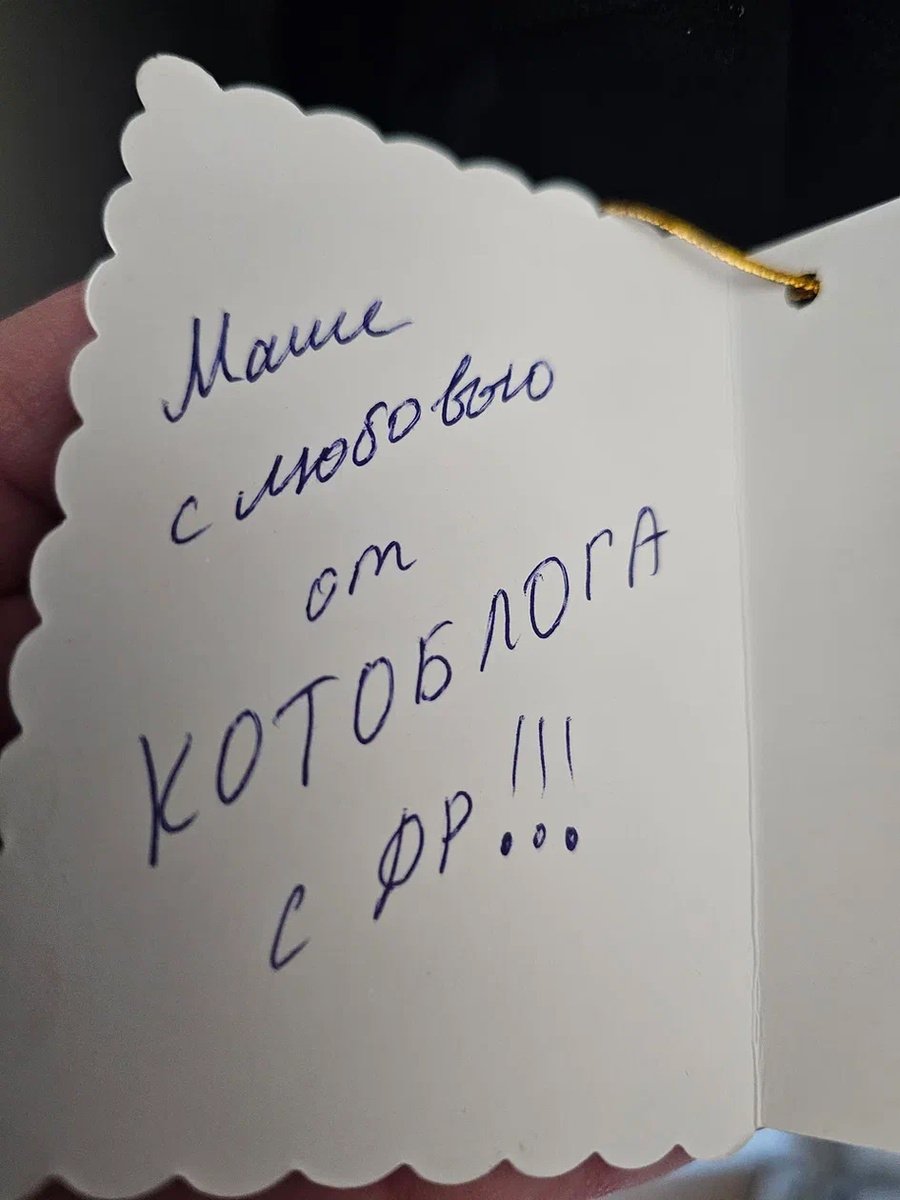 Маше
с любовью
от
КОТОБЛОГА
С ФР!!!